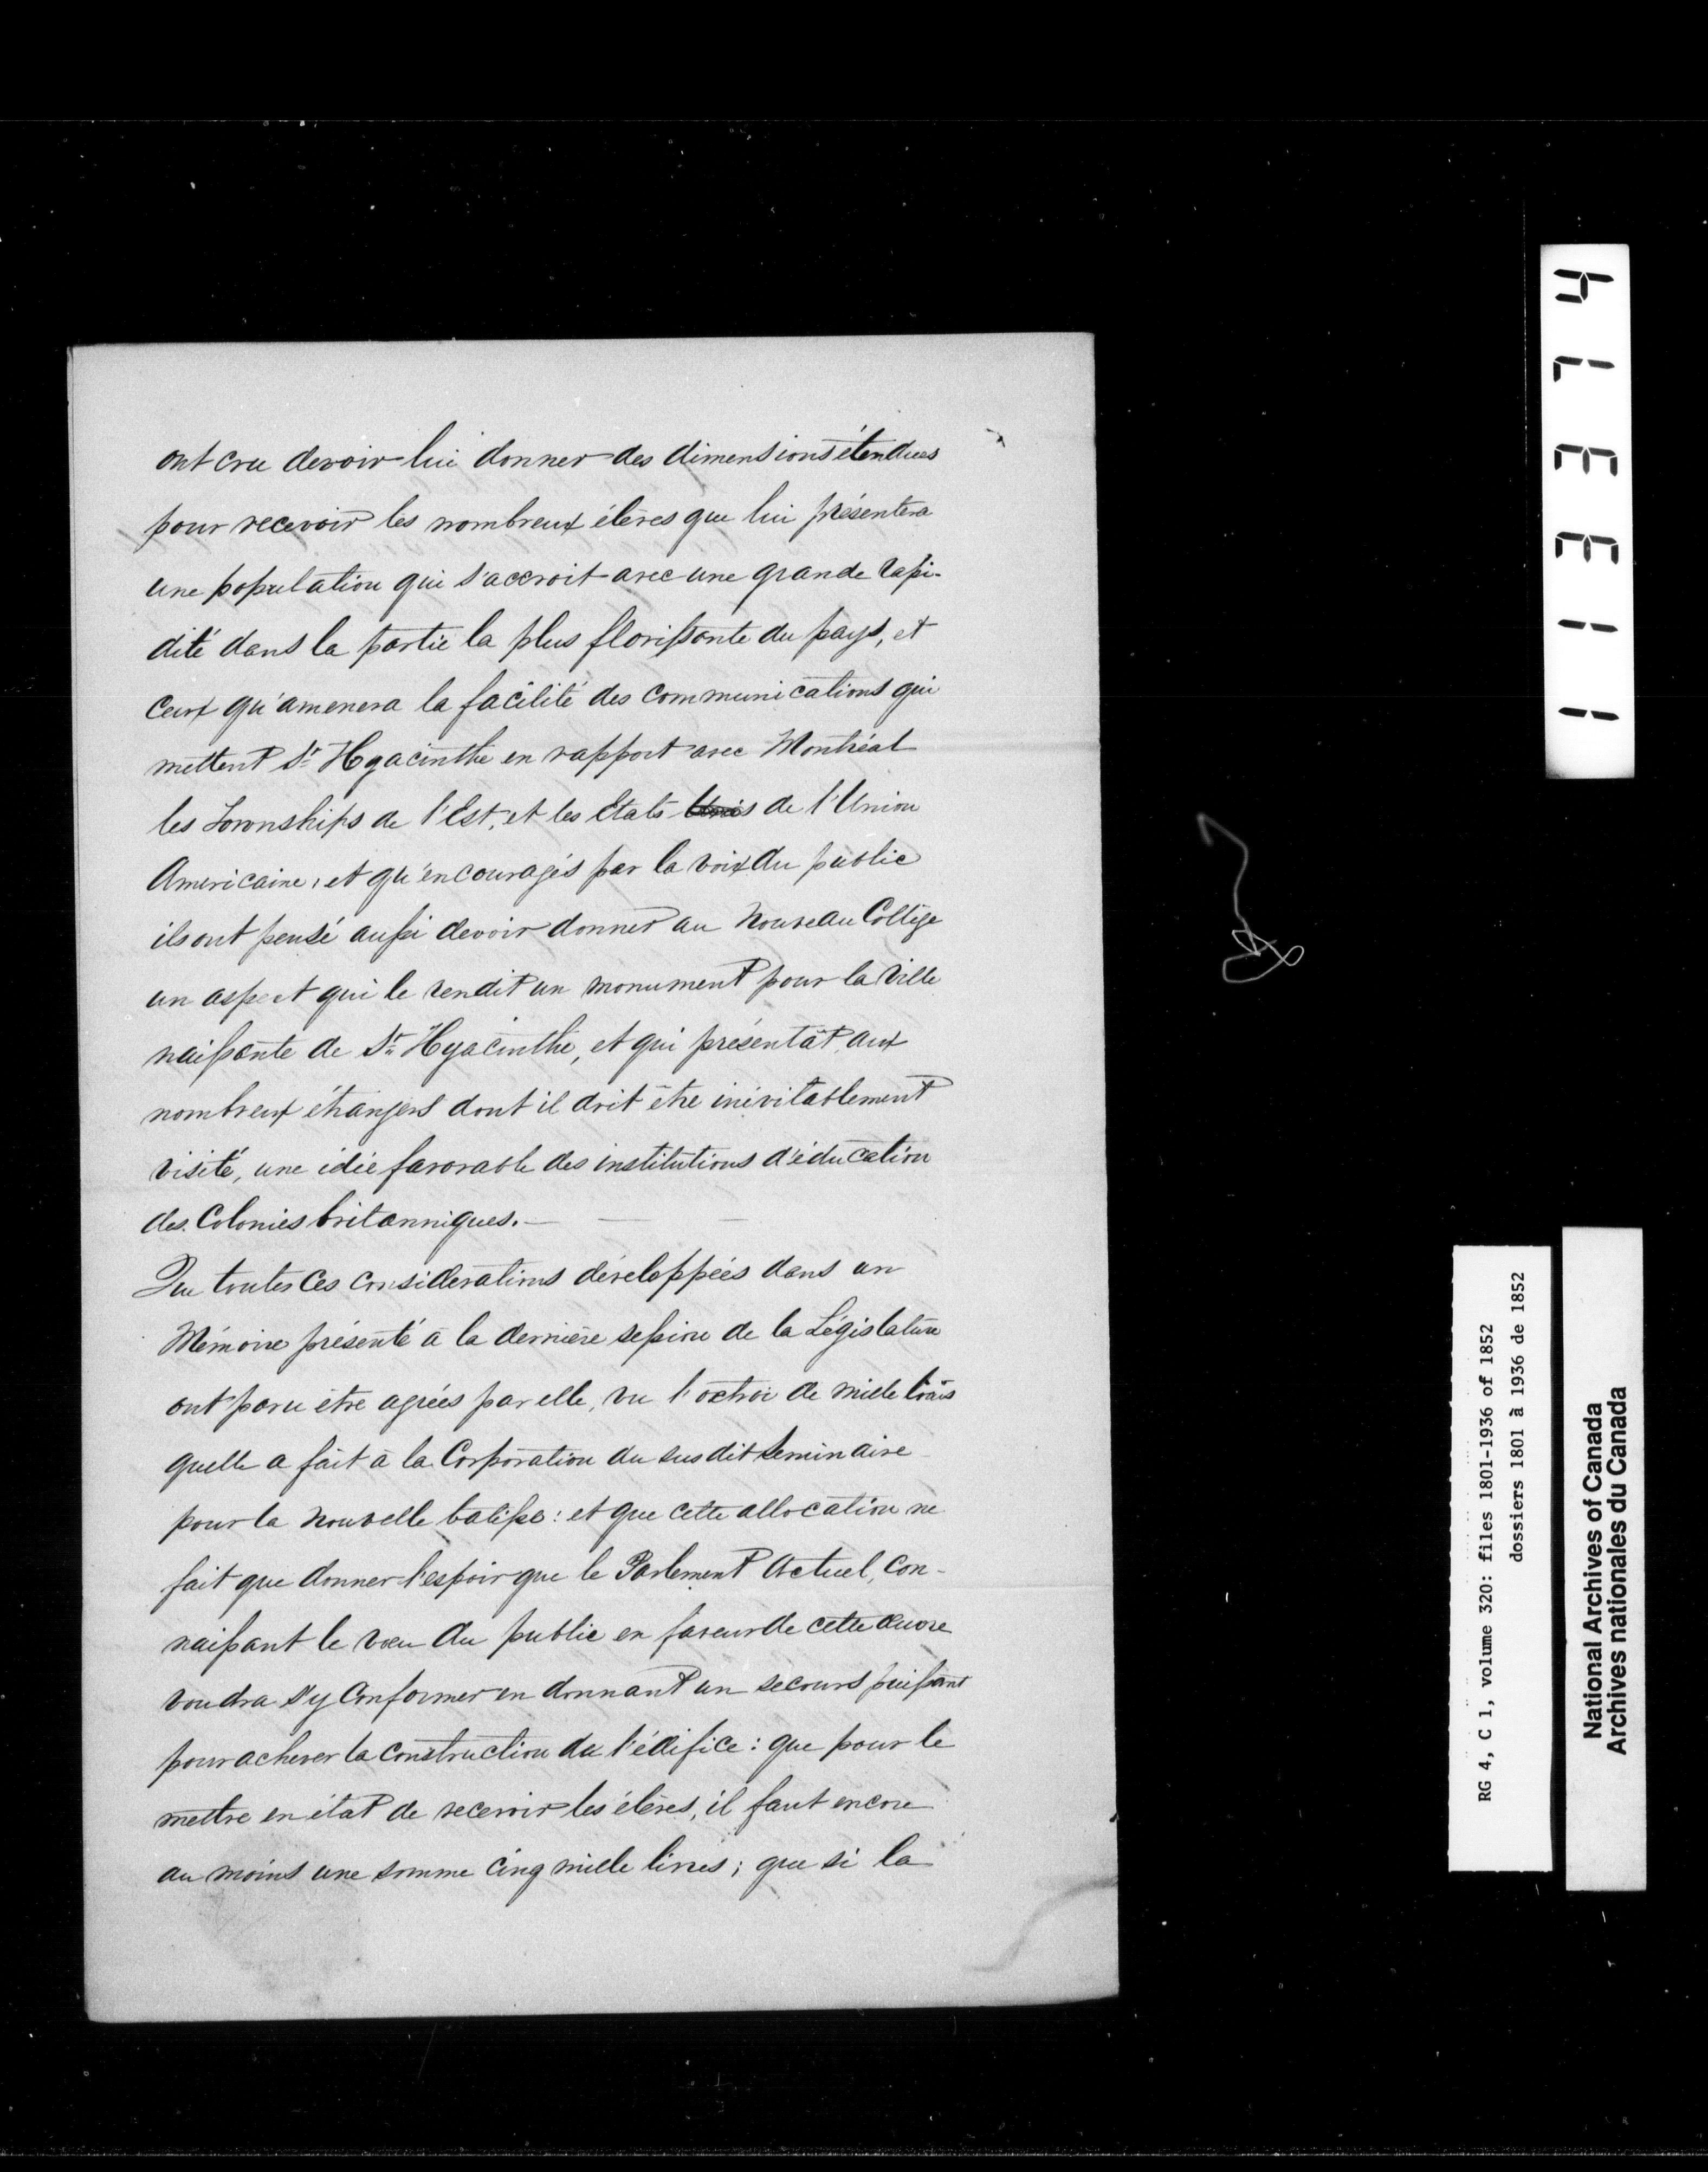 ont cru devoir lui donner des dimensions étendues
pour recevoir les nombreux élèves que lui présentera
une population qui s'accroit avec une grande rapi-
dité dans la partie la plus florissante du pays, et
ceux qu'amenera la facilité des communications qui
mettent St Hyacinthe en rapport avec Montréal
les Townships de l'Est, et les Etats Unis de l'Union
Américaine, et qu'encouragés par la voix du public
ils ont pensé aussi devoir donner au nouveau Collége
un aspect qui le rendit un monument pour la Ville
naissante de St Hyacinthe, et qui présentât aux
nombreux étrangers dont il doit être inévitablement
visité, une idée favorable des institutions d'éducation
des Colonies britanniques. —
Que toutes ces considerations développées dans un
Mémoire présenté à la dernière session de la Législature
ont paru être agréés par elle, vu l'octroi de mille
quelle a fait à la Corporation du susdit Seminaire
pour la nouvelle batisse : et que cette allocation ne
fait que donner l'espoir que le Parlement Actuel, con-
naissant le vœu du public en faveur de cette œuvre
voudra s'y conformer en donnant un secours puissant
pour achever la construction de l'édifice : que pour le
mettre en état de recevoir les élèves, il faut encore
au moins une somme cinq mille livres ; que si la
113374
RG 4, C 1, volume 320: files 1801-1936 of 1852
dossiers 1801 à 1936 de 1852
National Archives of Canada
Archives nationales du Canada